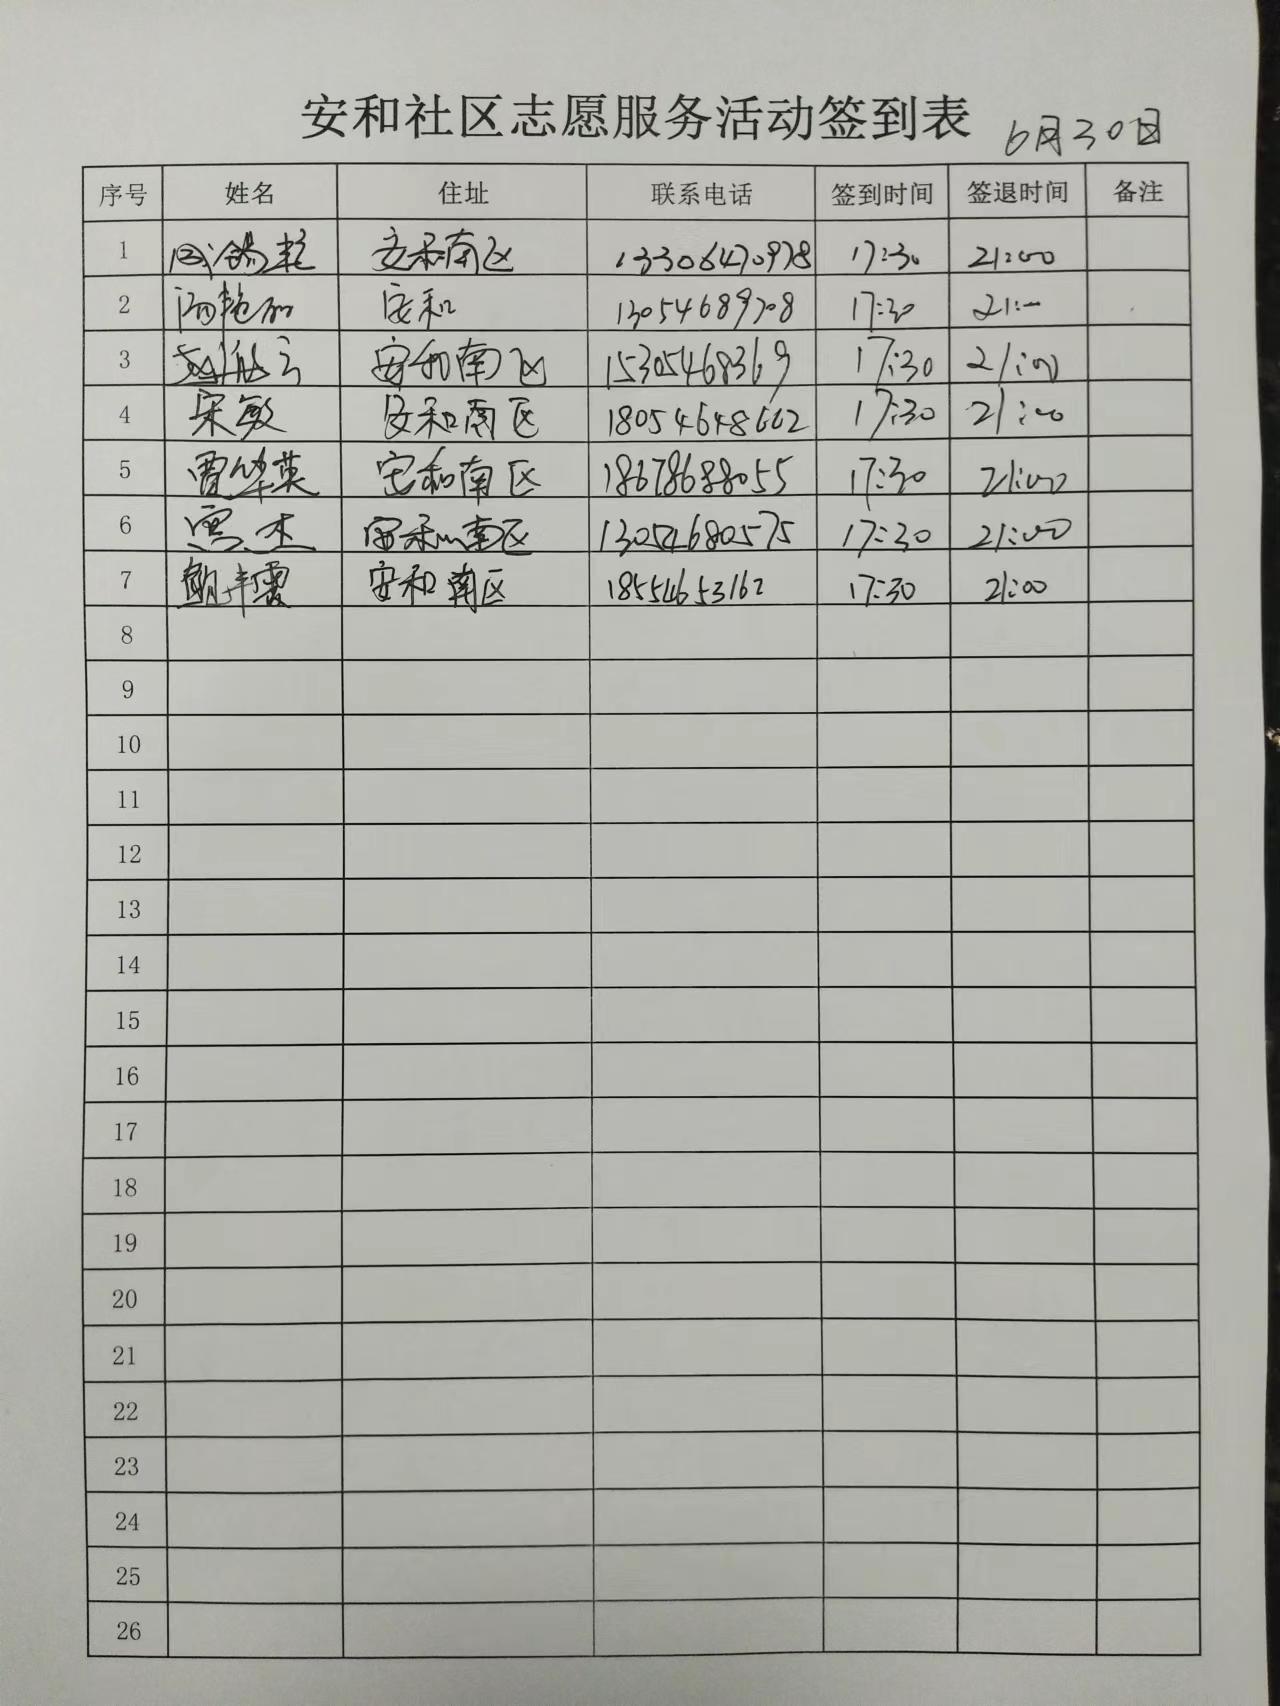 安和社区志愿服务活动签到表 6月30日
序号 姓名 住址 联系电话 签到时间 签退时间 备注
1 安和南区 13306470978 17:30 21:00
2 安和 13054689708 17:30 21:--
3 安和南区 15305468369 17:30 21:00
4 宋敏 安和南区 18054648662 17:30 21:00
5 贾华英 安和南区 18678688055 17:30 21:00
6 安和南区 13054680575 17:30 21:00
7 安和南区 18554653162 17:30 21:00
8
9
10
11
12
13
14
15
16
17
18
19
20
21
22
23
24
25
26